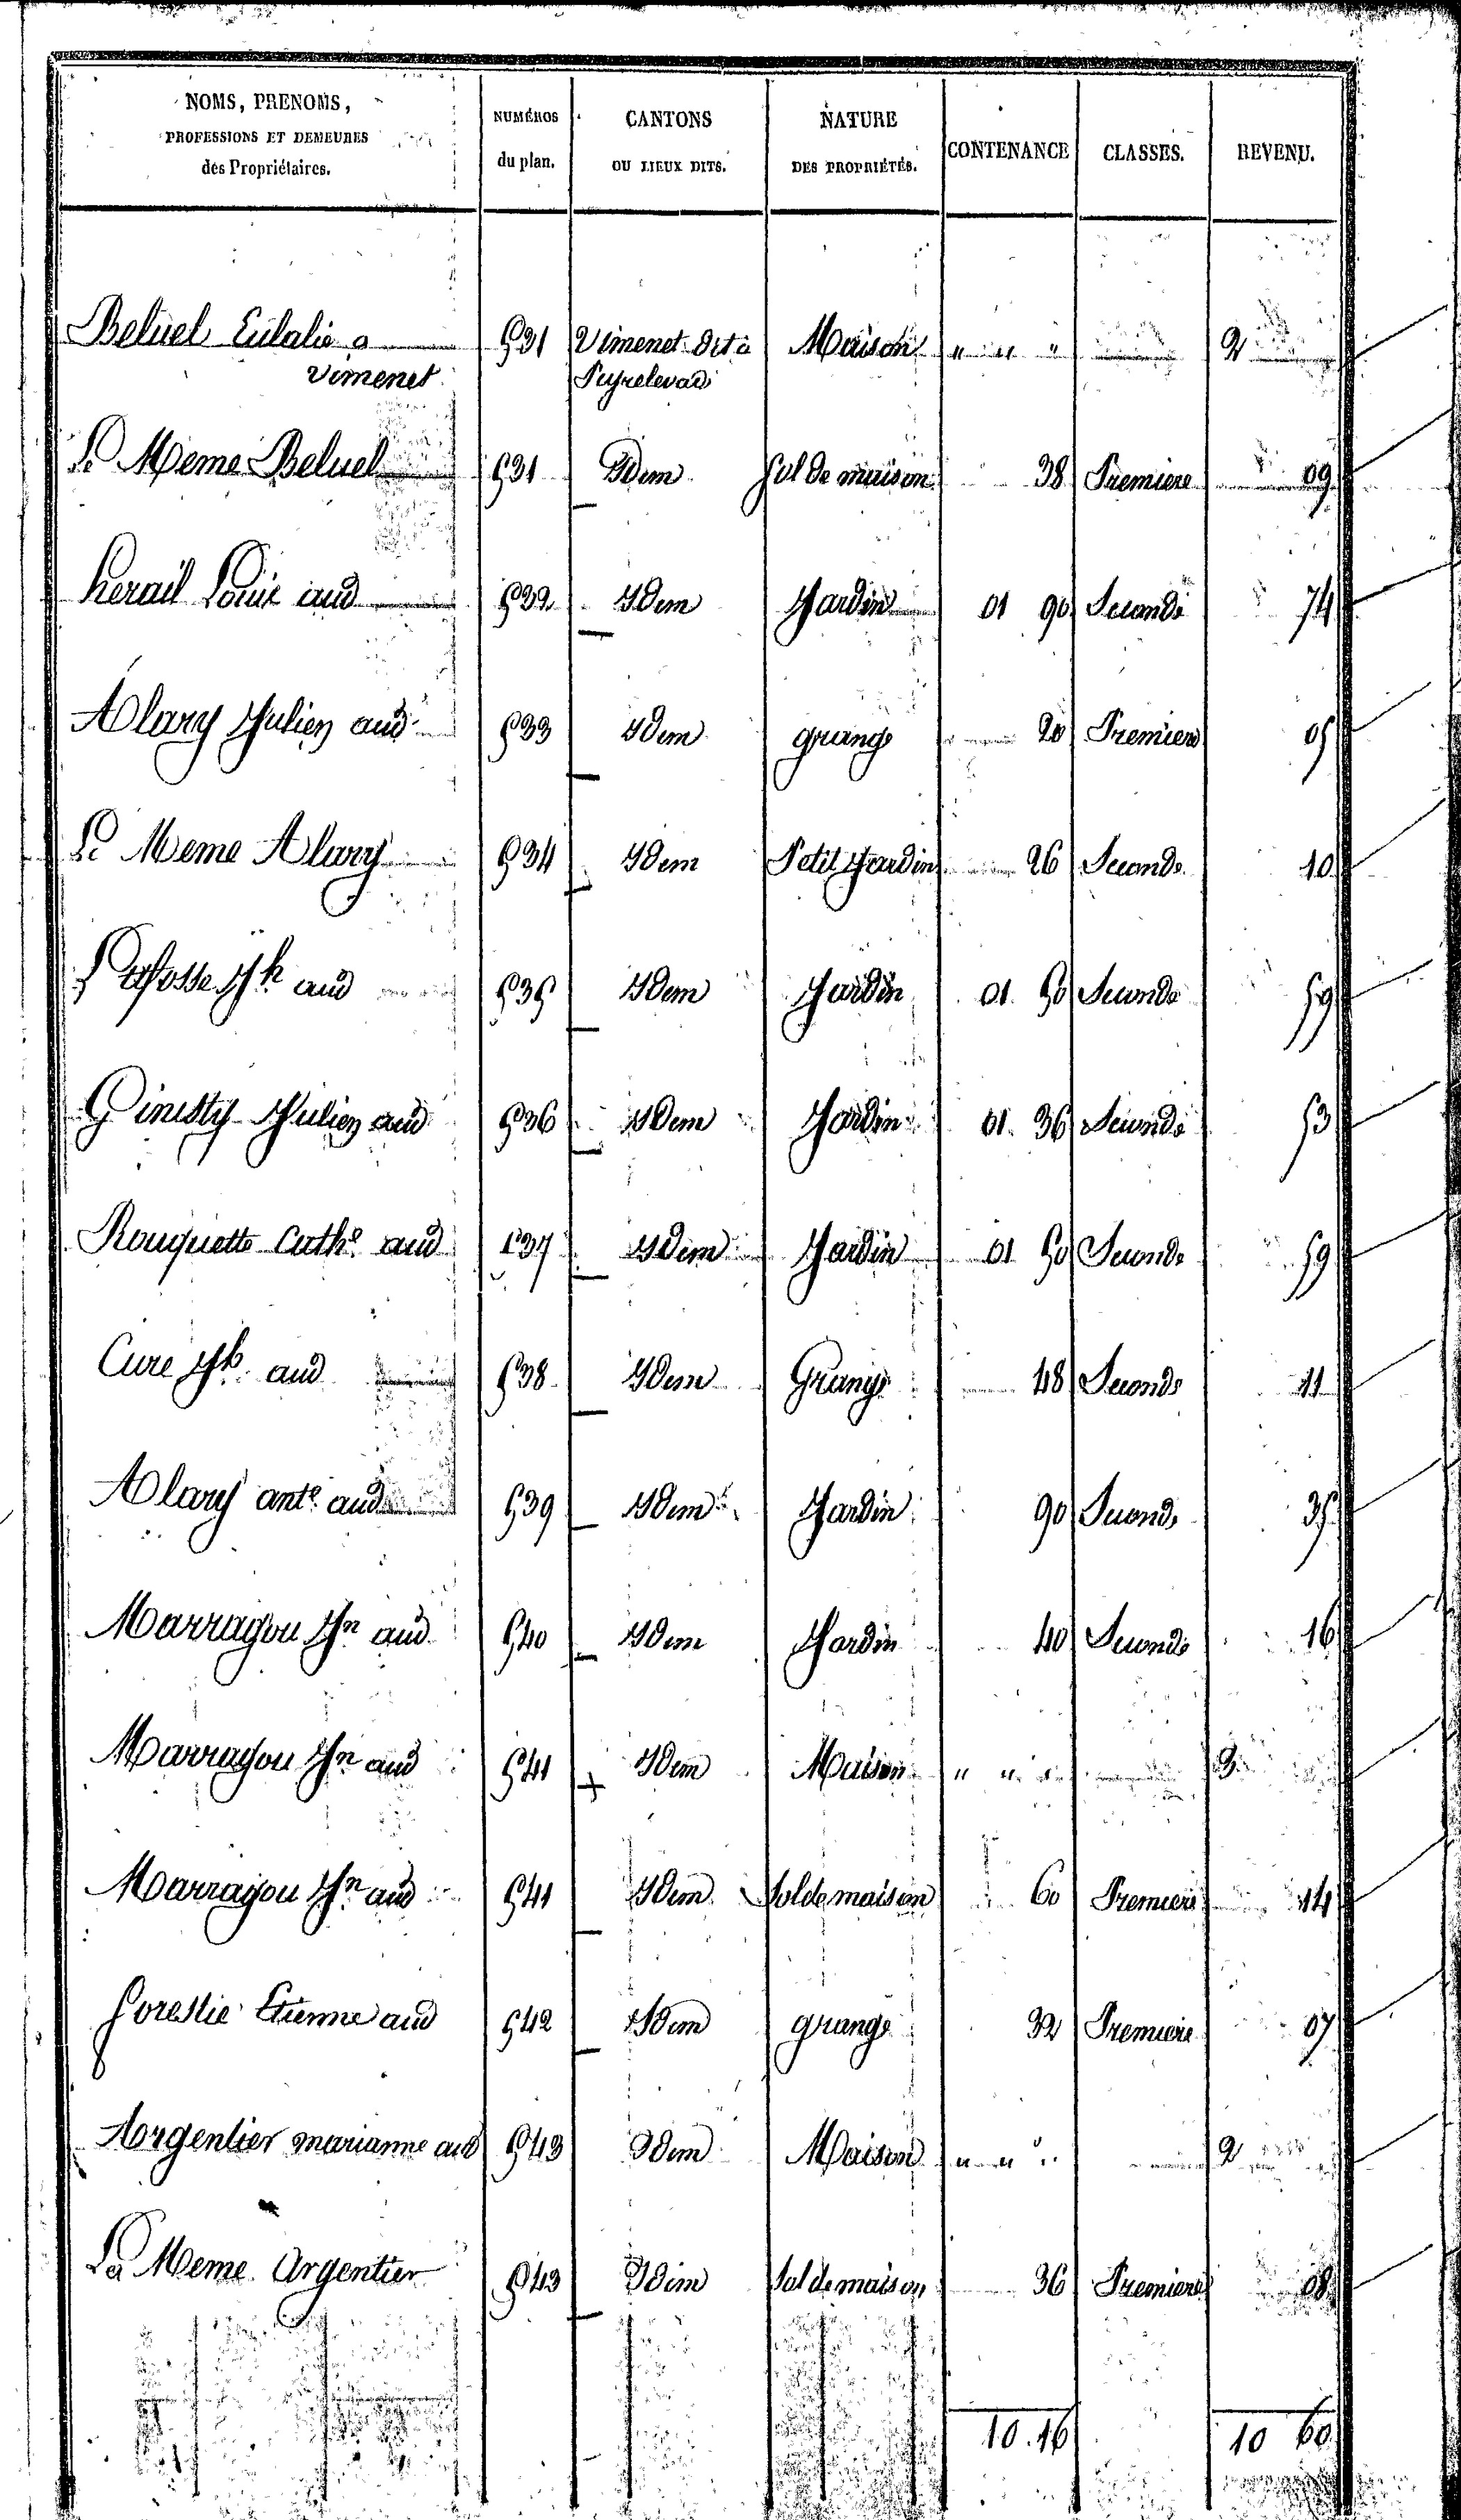 NOMS, PRENOMS, PROFESSIONS ET DEMEURES des Propriétaires. NUMÉROS du plan. CANTONS OU LIEUX DITS. NATURE DES PROPRIÉTÉS. CONTENANCE CLASSES. REVENU.
Beluel Eulalie a 531 Vimenet dit a Maison " " " 2
Vimenet Peyrelevad
Le Meme Beluel 531 Idem Sol de maison 38 Premiere 09
herail Louis aud 532 Idem Jardin 01 90 Seconde 74
Alary Julien aud 533 Idem grange 20 Premiere 05
Le Meme Alary 534 Idem Petit Jardin 26 Seconde 10
Jh aud 535 Idem Jardin 01 50 Seconde 59
Ginesty Julien aud 536 Idem Jardin 01 36 Seconde 53
Rouquette Cathe aud 537 Idem Jardin 01 50 Seconde 59
Cure Jh aud 538 Idem Grange 48 Seconde 11
Alary ante aud 539 Idem Jardin 90 Seconde 35
Marragou Jn aud 540 Idem Jardin 40 Seconde 16
Marragou Jn aud 541 Idem Maison " " " 3
Marragou Jn aud 541 Idem Sol de maison 60 Premiere 14
forestie Etienne aud 542 Idem grange 32 Premiere 07
Argentier marianne aud 543 Idem Maison " " " 2
La Meme Argentier 543 Idem Sol de maison 36 Premiere 08
10.16 10 60